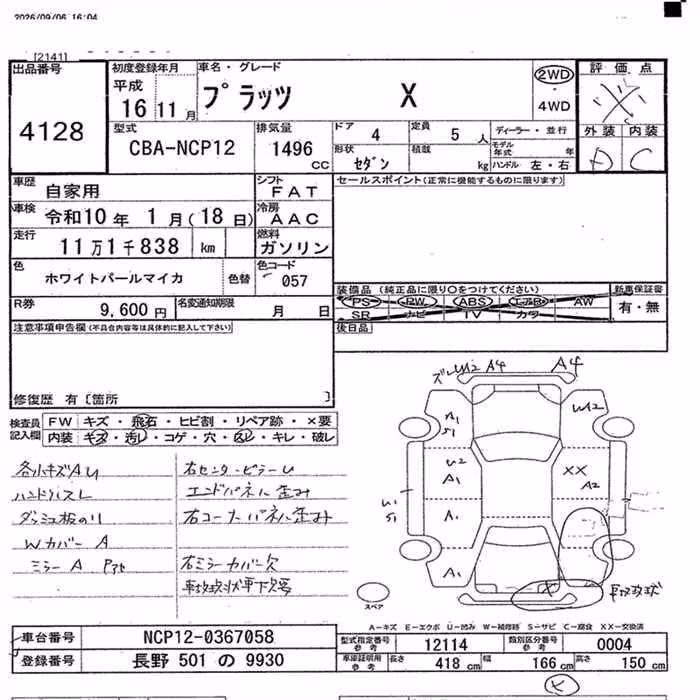 2026/09/06 16:04
[2141]
出品番号
4128
初度登録年月
平成
16 11 月
車名・グレード
プラッツ X
2WD
・
4WD
評価点
外装 内装
D C
型式
CBA-NCP12
排気量
1496 CC
ドア 4
定員 5 人
形状 セダン
積載 kg
ディーラー・並行
モデル年式 年
ハンドル 左・右
車歴
自家用
シフト
FAT
車検
令和10 年 1 月(18 日)
冷房
AAC
走行
11 万 1 千 838 km
燃料
ガソリン
色
ホワイトパールマイカ
色替
色コード
057
R券
9,600 円
名変通知期限
月 日
セールスポイント(正常に機能するものに限ります)
装備品 (純正品に限り○をつけてください)
PS PW ABS エアB AW
SR ナビ TV カワ
新車保証書
有・無
後日品
注意事項申告欄(不具合内容等は具体的に記入して下さい)
修復歴 有〔箇所 〕
検査員
記入欄
FW キズ・飛石・ヒビ割・リペア跡・×要
内装 キズ・汚レ・コゲ・穴・スレ・キレ・破レ
各小キズAU
ハンドルスレ
ダッシュ板のり
Wカバー A
ミラー A
右センターピラーU
エンドパネル歪み
右コーナーパネル歪み
右ミラーカバー欠
A4
U2 A4
A1
S1
U2
U2
A1
XX
A2
U1
S1
A1
A1
X
スペア
A-キズ E-エクボ U-凹み W-補修跡 S-サビ C-腐食 XX-交換済
車台番号
NCP12-0367058
登録番号
長野 501 の 9930
型式指定番号
参考
12114
類別区分番号
参考
0004
車庫証明用
参考
長さ 418 cm
幅 166 cm
高さ 150 cm